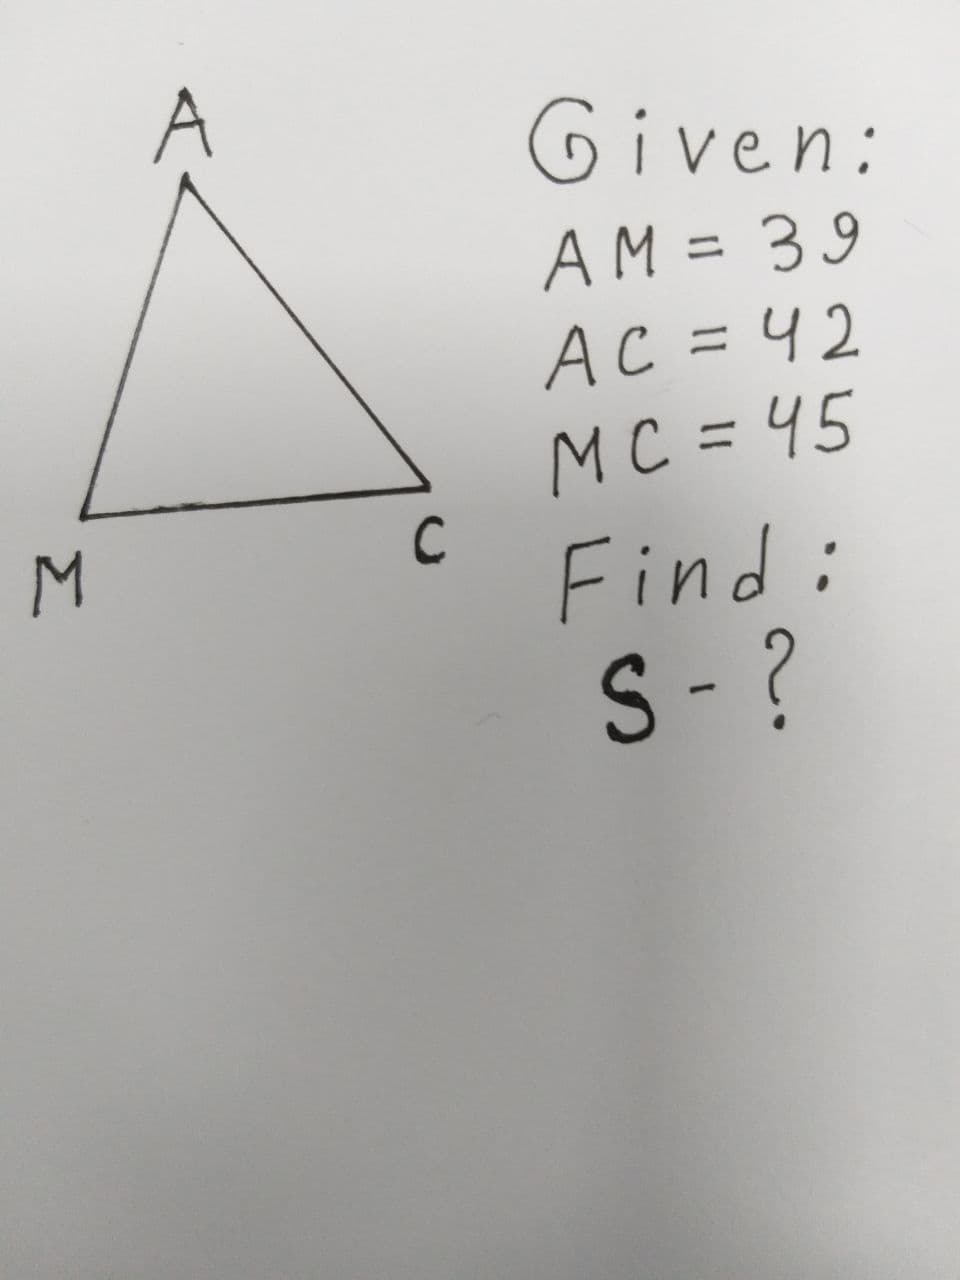 A
M
C
Given:
AM = 39
AC = 42
MC = 45
Find:
S - ?